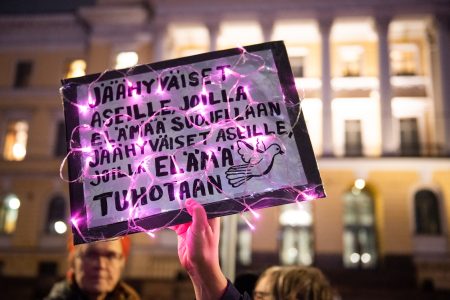 JÄÄHYVÄISET
ASEILLE JOILLA
ELÄMÄÄ SUOJELLAAN
JÄÄHYVÄISET ASEILLE,
JOILLA ELÄMÄ
TUHOTAAN